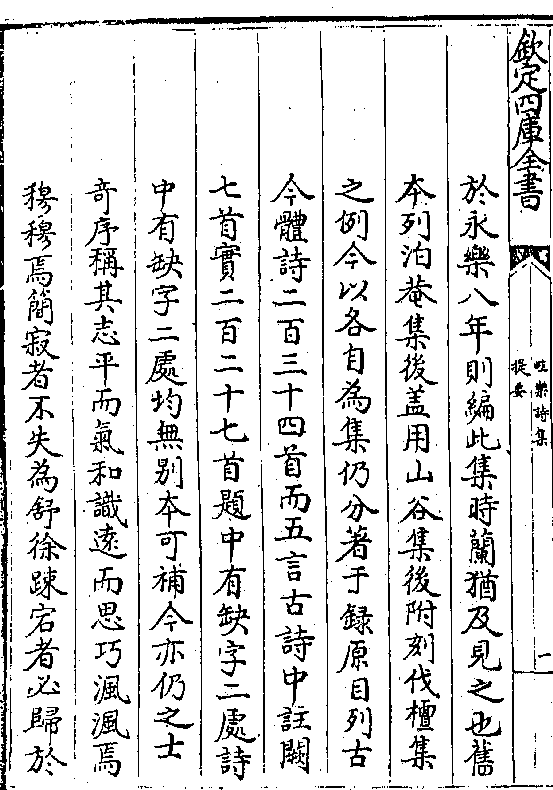 欽定四庫全書
畦樂詩集
提要
一
於永樂八年則編此集時蘭猶及見之也舊
本列泊菴集後盖用山谷集後附刻伐檀集
之例今以各自為集仍分著于録原目列古
今體詩二百三十四首而五言古詩中註闕
七首實二百二十七首題中有缺字二處詩
中有缺字二處均無別本可補今亦仍之士
奇序稱其志平而氣和識遠而思巧渢渢焉
穆穆焉簡寂者不失為舒徐踈宕者必歸於